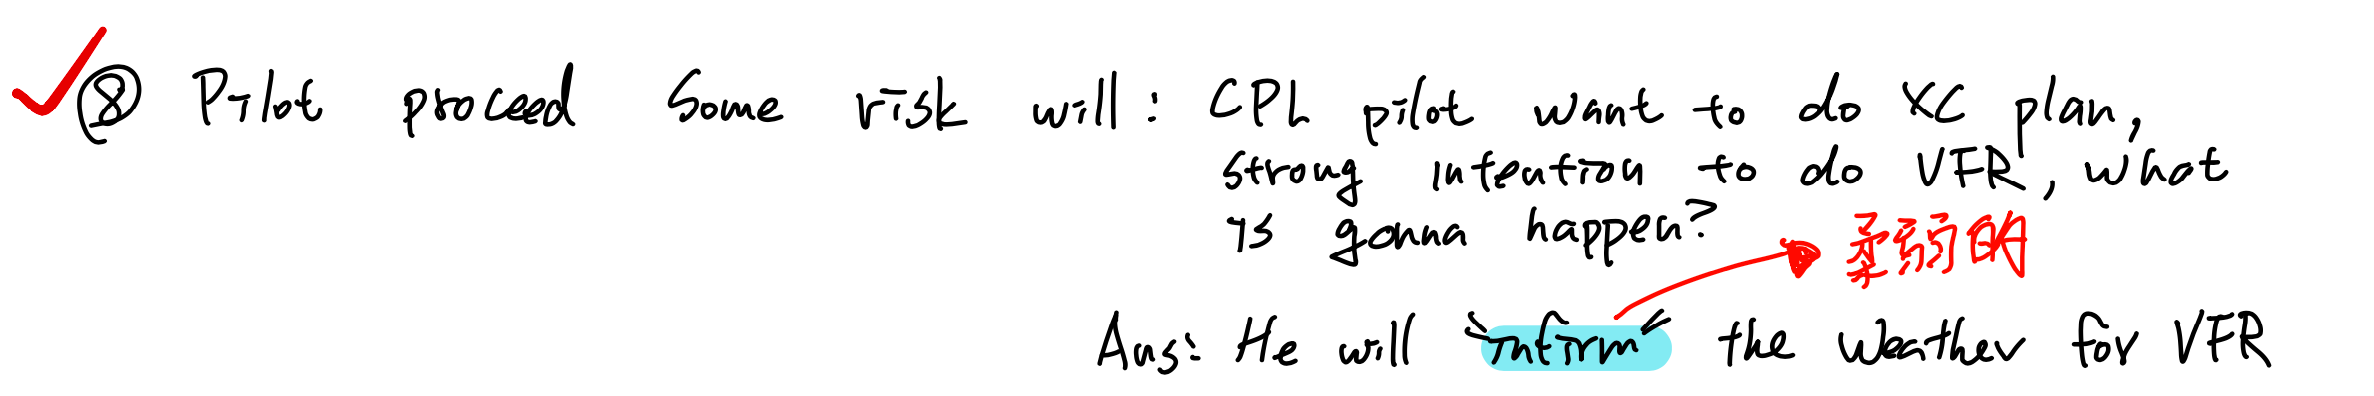 ⑧ Pilot proceed some risk will: CPL pilot want to do XC plan,
strong intention to do VFR, what
is gonna happen?
柔弱的
Ans: He will "infirm" the weather for VFR